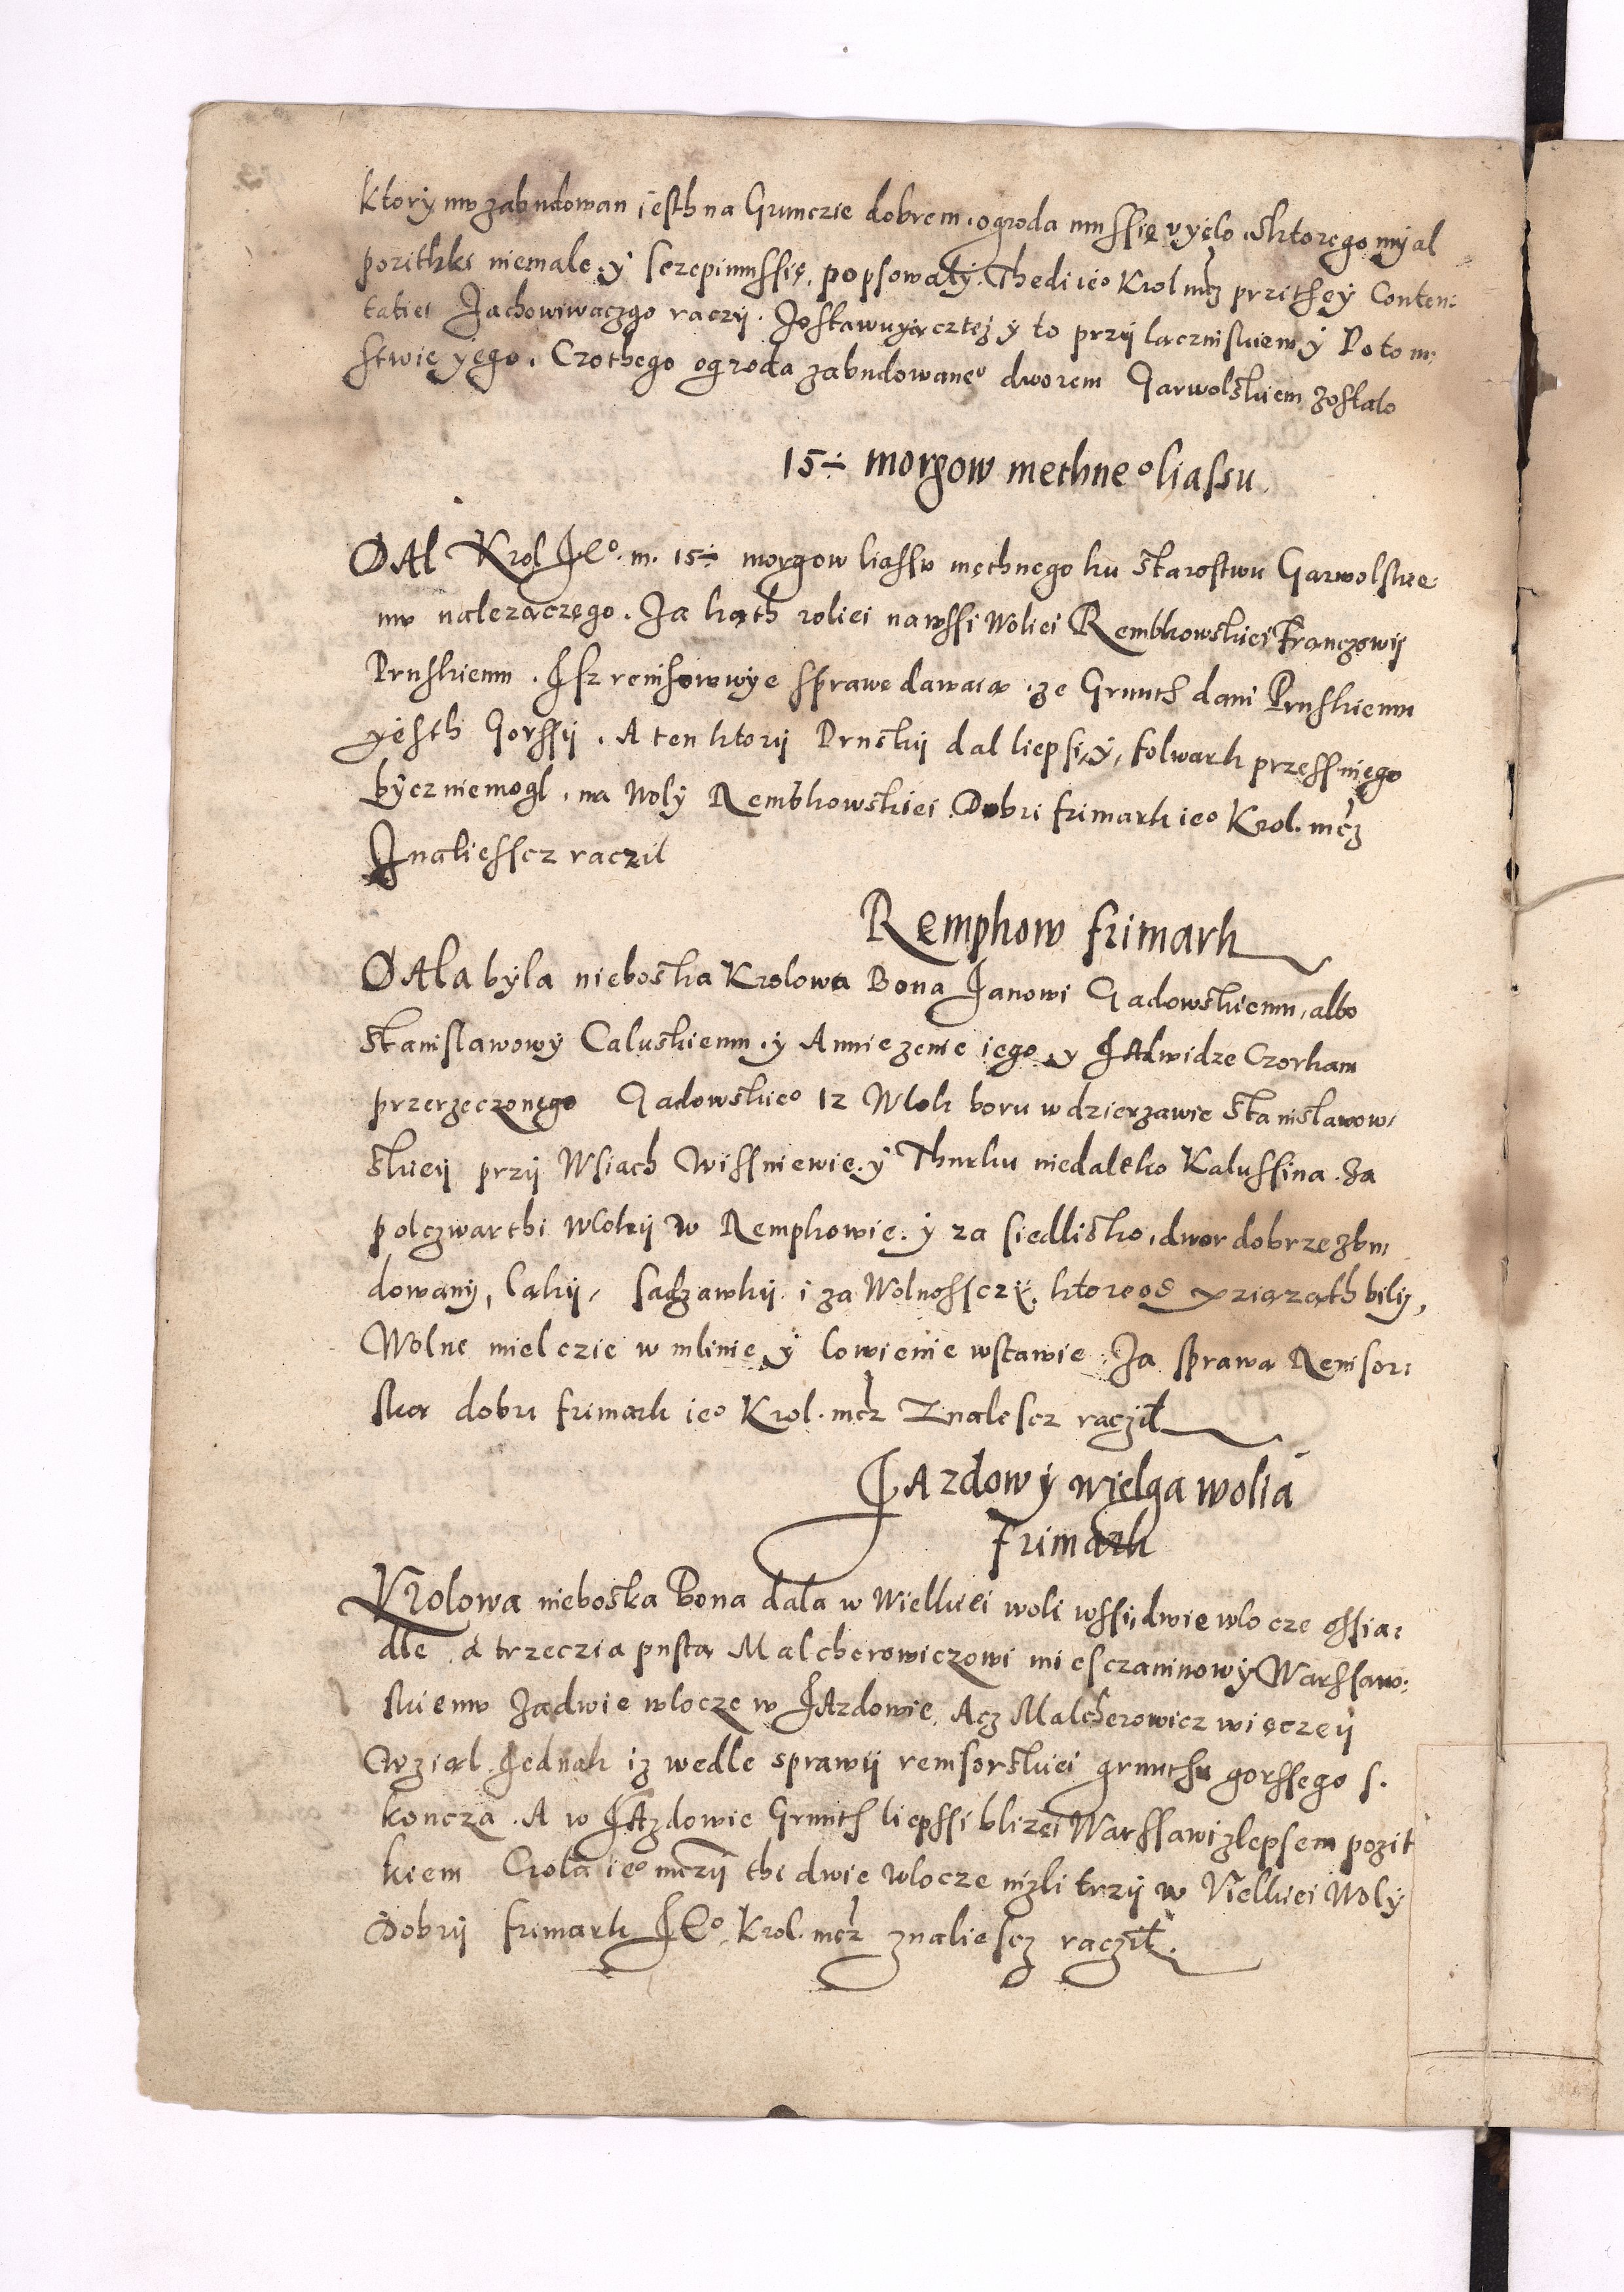 ktory mv zabudowan iesth na Grunczie dobrem. ogroda mu ssię vyęlo. Shtoręgo myal
pozithki niemale. y sczepi mu ssię. popsowaly. Thedi ieo Krol mcz przithęy Conten:
tatiei Zachowiwacz go raczy. Zostawuyącz też y to przy lacznskiemy Potom:
stwię yęgo. Czothego ogroda zabudowaneo dworem Garwolskiem zostalo
15÷ morgow methneo liassu
DAl Krol IEo. m. 15÷ morgow liassv męthnego ku starostwu Garwolskie:
mv nalezączęgo. Za kąth roliei na wssi Woliei Rembkowskiei Franczowij
Pruskiemu. Isz remisorowye sprawę dawaią. ze Grunth dani Pruskiemu
yęsth Gorssy. A ten ktory Pruskij dal liepsiy, folwark przessnięgo
bycz niemogl. na Woly Rembkowskiei. Dobri frimark ieo Krol. mcz
Znaliesscz raczil
Remphow frimark
DAla byla nieboska Krolowa Bona Janowi Gadowskiemu, albo
Stanislawowy Caluskiemu. y Annie zenie iego. y JAdwidze Czorkam
przerzeczonęgo Gadowskieo 12 Wlok boru w dzierzawie Stanislawow,
skiey przy Wsiach Wissniewie. y Thurku niedaleko Kalussina. Za
polczwarthi Wloky w Rempkowie. y za siedlisko, dwor dobrze zbu,
dowany, laky, sadzawky. i za Wolnosscżę. ktore od xziązath bily,
Wolne mielczie w mlinie y lowienie wstawie. Za sprawą Remisor:
ską dobri frimark ieo Krol. mcz Znalescz raczil
JAzdow y wielga wolia
Frimark
KRolowa nieboska Bona dala w Wielkiei woli wssy dwie wlocze ossia:
dle a trzeczią pustą Malcherowiczowi miesczaninowy Warssaw:
skiemv Za dwie wlocze w JAzdowie. Acz Malcherowicz więczey
Wziąl. Jednak iz wedle sprawy remisorskiei grunthu gorssego s.
koncza. A w JAzdowie Grunth liepssi blizei Warssawi z lepsem pozit
kiem Crola ieo mczy thi dwie wlocze nizli trzy w Vielkiei Woly
Dobry frimark IEo. Krol. mcz znaliescz raczil.